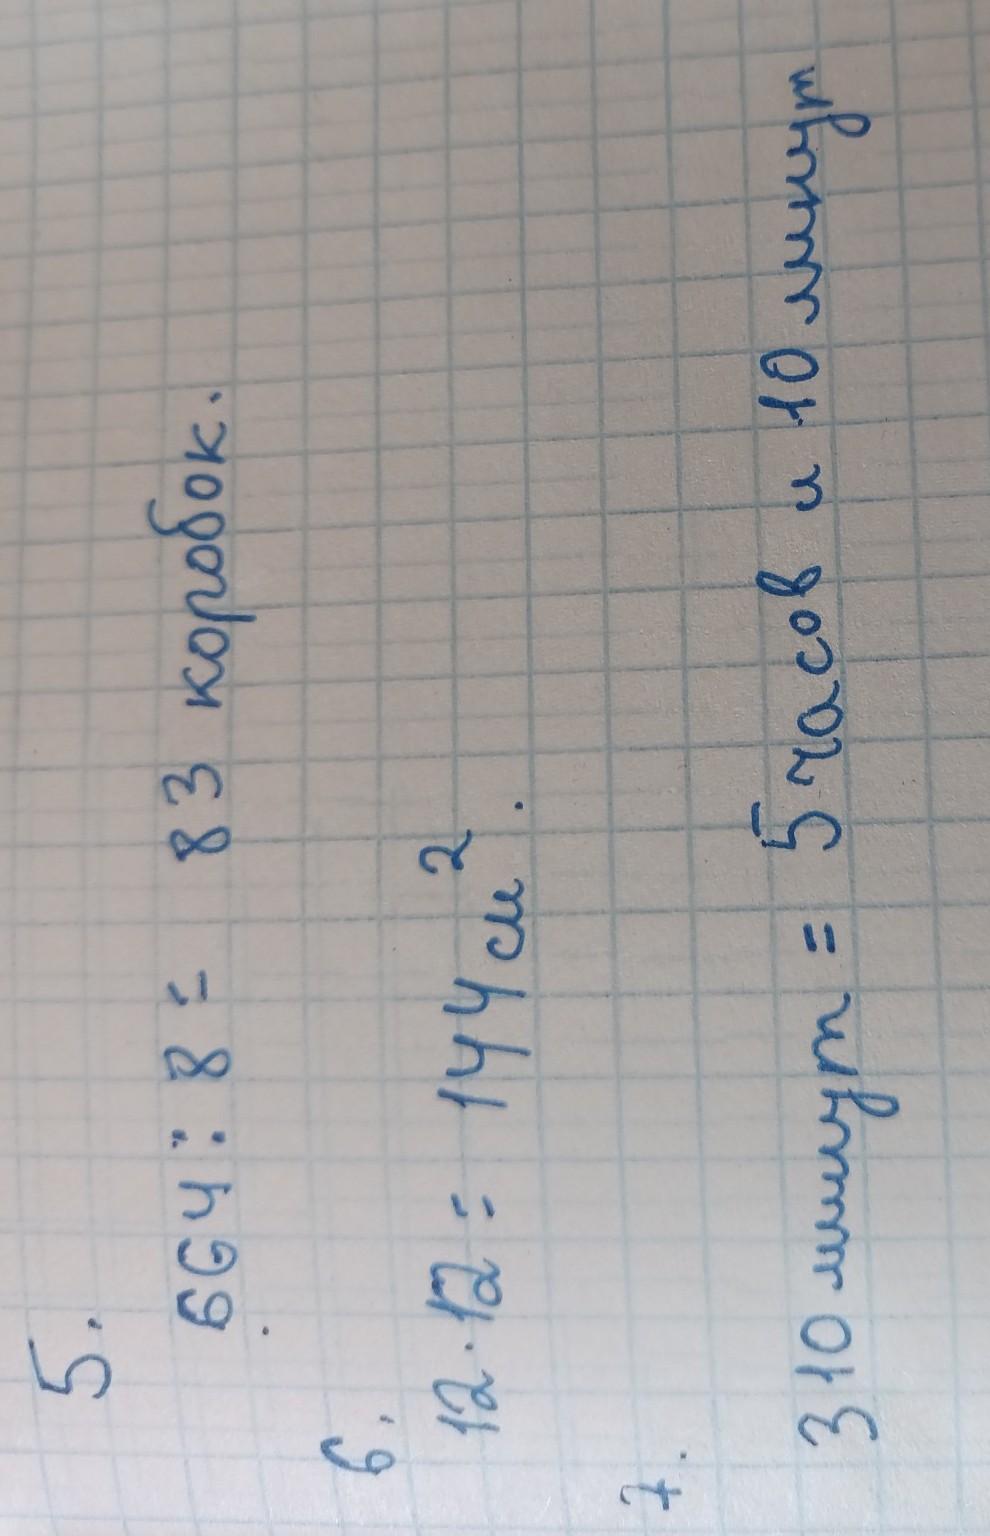 5.
664 : 8 = 83 коробок.
6.
12 · 12 = 144 см².
7.
310 минут = 5 часов и 10 минут